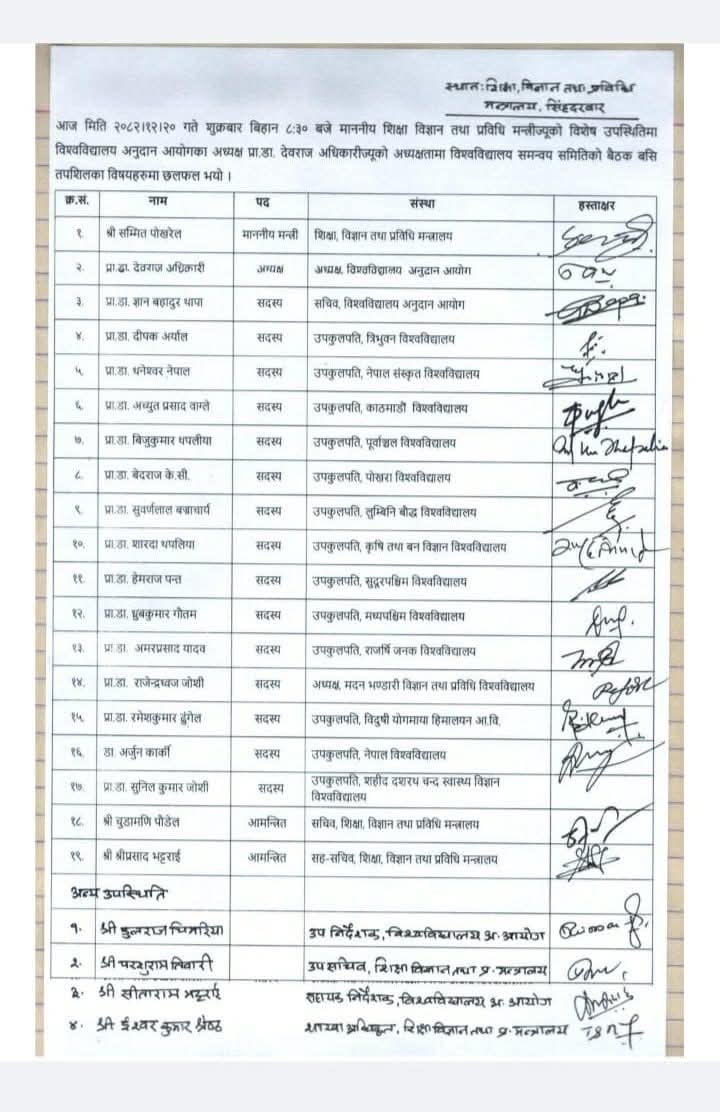 स्थान: शिक्षा, विज्ञान तथा प्रविधि
मन्त्रालय, सिंहदरबार
आज मिति २०८२।१२।२० गते शुक्रबार बिहान ८:३० बजे माननीय शिक्षा विज्ञान तथा प्रविधि मन्त्रीज्यूको विशेष उपस्थितिमा
विश्वविद्यालय अनुदान आयोगका अध्यक्ष प्रा.डा. देवराज अधिकारीज्यूको अध्यक्षतामा विश्वविद्यालय समन्वय समितिको बैठक बसि
तपशिलका विषयहरुमा छलफल भयो ।
क्र.सं. नाम पद संस्था हस्ताक्षर
१. श्री सस्मित पोखरेल माननीय मन्त्री शिक्षा, विज्ञान तथा प्रविधि मन्त्रालय
२. प्रा.डा. देवराज अधिकारी अध्यक्ष अध्यक्ष, विश्वविद्यालय अनुदान आयोग
३. प्रा.डा. ज्ञान बहादुर थापा सदस्य सचिव, विश्वविद्यालय अनुदान आयोग
४. प्रा.डा. दीपक अर्याल सदस्य उपकुलपति, त्रिभुवन विश्वविद्यालय
५. प्रा.डा. धनेश्वर नेपाल सदस्य उपकुलपति, नेपाल संस्कृत विश्वविद्यालय
६. प्रा.डा. अच्युत प्रसाद वाग्ले सदस्य उपकुलपति, काठमाडौं विश्वविद्यालय
७. प्रा.डा. बिजुकुमार थपलीया सदस्य उपकुलपति, पूर्वाञ्चल विश्वविद्यालय
८. प्रा.डा. बेदराज के.सी. सदस्य उपकुलपति, पोखरा विश्वविद्यालय
९. प्रा.डा. सुवर्णलाल बज्राचार्य सदस्य उपकुलपति, लुम्बिनि बौद्ध विश्वविद्यालय
१०. प्रा.डा. शारदा थपलिया सदस्य उपकुलपति, कृषि तथा बन विज्ञान विश्वविद्यालय
११. प्रा.डा. हेमराज पन्त सदस्य उपकुलपति, सुदूरपश्चिम विश्वविद्यालय
१२. प्रा.डा. ध्रुबकुमार गौतम सदस्य उपकुलपति, मध्यपश्चिम विश्वविद्यालय
१३. प्रा.डा. अमरप्रसाद यादव सदस्य उपकुलपति, राजर्षि जनक विश्वविद्यालय
१४. प्रा.डा. राजेन्द्रध्वज जोशी सदस्य अध्यक्ष, मदन भण्डारी विज्ञान तथा प्रविधि विश्वविद्यालय
१५. प्रा.डा. रमेशकुमार ढुंगेल सदस्य उपकुलपति, विदुषी योगमाया हिमालयन आ.वि.
१६. डा. अर्जुन कार्की सदस्य उपकुलपति, नेपाल विश्वविद्यालय
१७. प्रा.डा. सुनिल कुमार जोशी सदस्य उपकुलपति, शहीद दशरथ चन्द स्वास्थ्य विज्ञान
विश्वविद्यालय
१८. श्री चुडामणि पौडेल आमन्त्रित सचिव, शिक्षा, विज्ञान तथा प्रविधि मन्त्रालय
१९. श्री श्रीप्रसाद भट्टराई आमन्त्रित सह-सचिव, शिक्षा, विज्ञान तथा प्रविधि मन्त्रालय
अन्य उपस्थिति
१. श्री कुलराज चिमरिया उप निर्देशक, विश्वविद्यालय अ. आयोग
२. श्री परशुराम तिवारी उप सचिव, शिक्षा विज्ञान तथा प्र. मन्त्रालय
३. श्री सीताराम भट्टराई सहायक निर्देशक, विश्वविद्यालय अ. आयोग
४. श्री ईश्वर कुमार श्रेष्ठ शाखा अधिकृत, शिक्षा विज्ञान तथा प्र. मन्त्रालय